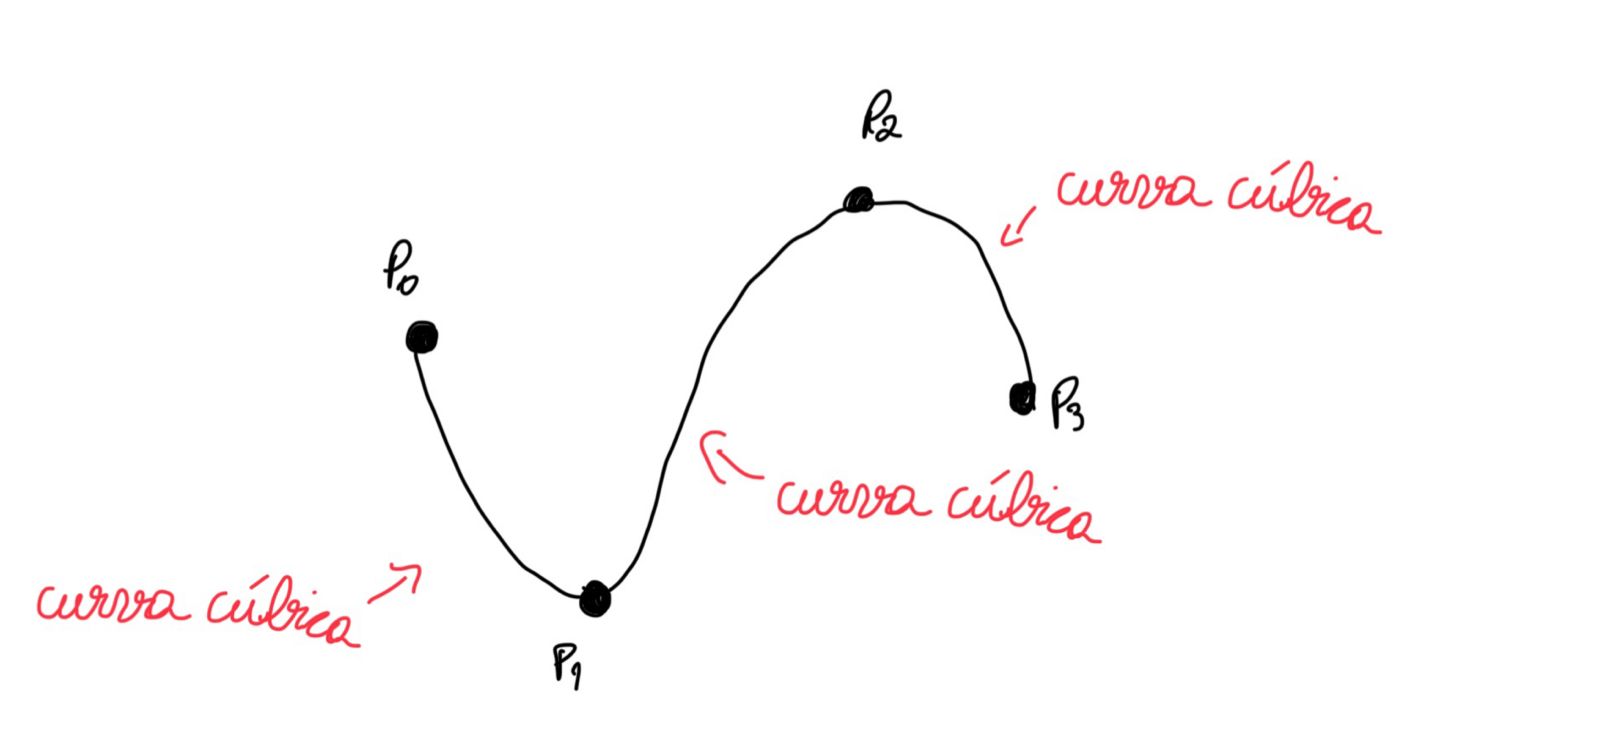 P2
curva cúbica
P0
P3
curva cúbica
curva cúbica
P1